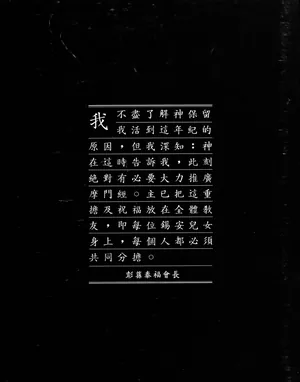 我不盡了解神保留
我活到這年紀的
原因，但我深知：神
在這時告訴我，此刻
絕對有必要大力推廣
摩門經。主已把這重
擔及祝福放在全體教
友，即每位錫安兒女
身上，每個人都必須
共同分擔。
彭蓀泰福會長